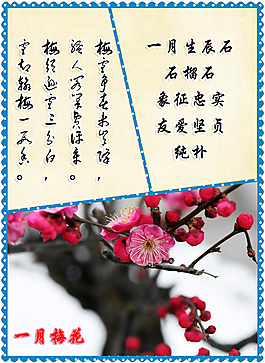 梅雪争春未肯降，
骚人阁笔费评章。
梅须逊雪三分白，
雪却输梅一段香。
一月生辰石
石榴石
象征忠实
友爱坚贞
纯朴
一月梅花